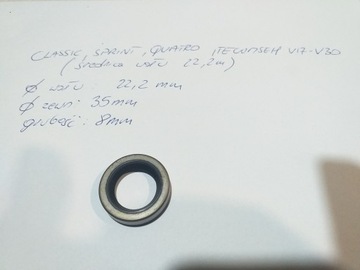 CLASSIC, SPRINT, QUATRO, TECUMSEH V17-V30
(ŚREDNICA WAŁU 22,2m)
Ø WAŁU : 22,2 mm
Ø zewn : 35mm
grubość : 8mm